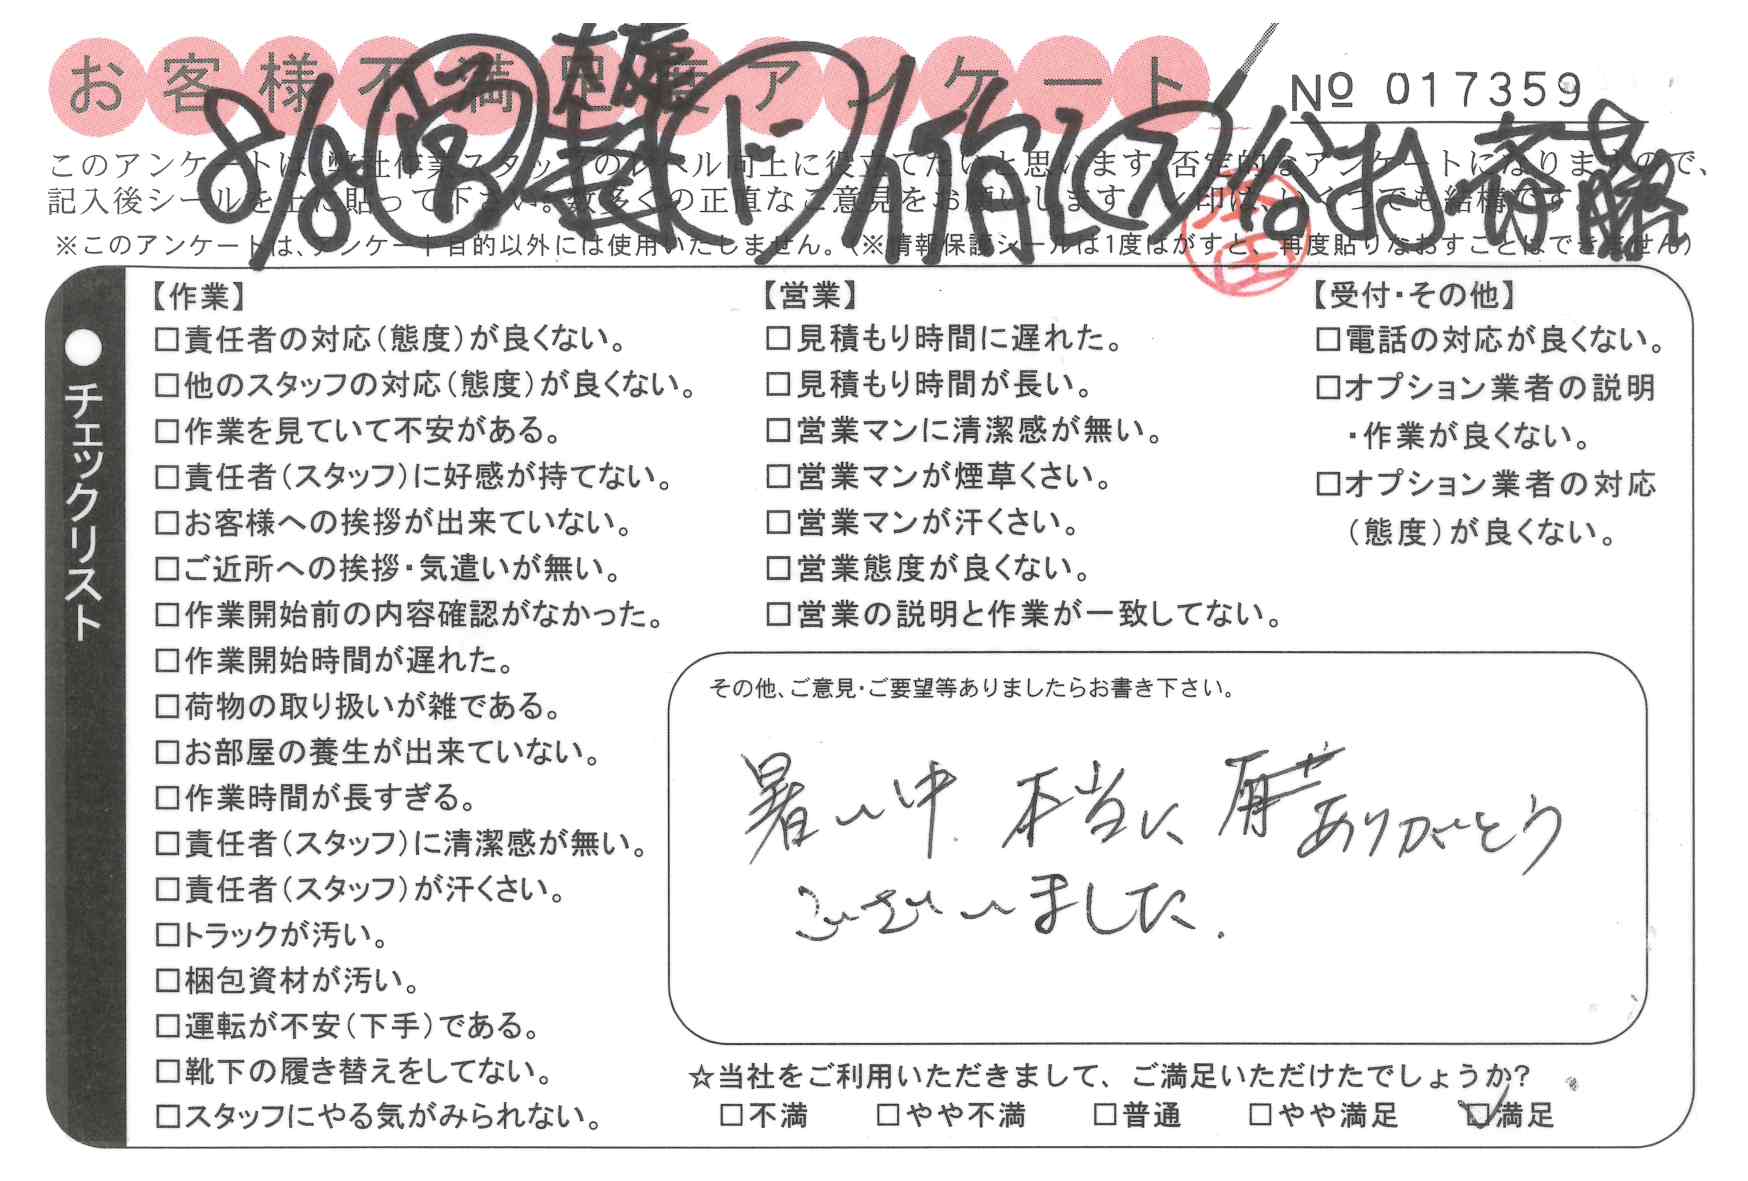 お客様不満足度アンケート
No 017359
8/8
このアンケートは、弊社作業スタッフのレベル向上に役立てたいと思います。否定的なアンケートになりますので、
記入後シールを上に貼って下さい。数多くの正直なご意見をお願いします。✓印は、いくつでも結構です。
※このアンケートは、アンケート目的以外には使用いたしません。(※情報保護シールは1度はがすと、再度貼りなおすことはできません)
●チェックリスト
【作業】
□責任者の対応(態度)が良くない。
□他のスタッフの対応(態度)が良くない。
□作業を見ていて不安がある。
□責任者(スタッフ)に好感が持てない。
□お客様への挨拶が出来ていない。
□ご近所への挨拶・気遣いが無い。
□作業開始前の内容確認がなかった。
□作業開始時間が遅れた。
□荷物の取り扱いが雑である。
□お部屋の養生が出来ていない。
□作業時間が長すぎる。
□責任者(スタッフ)に清潔感が無い。
□責任者(スタッフ)が汗くさい。
□トラックが汚い。
□梱包資材が汚い。
□運転が不安(下手)である。
□靴下の履き替えをしてない。
□スタッフにやる気がみられない。
【営業】
□見積もり時間に遅れた。
□見積もり時間が長い。
□営業マンに清潔感が無い。
□営業マンが煙草くさい。
□営業マンが汗くさい。
□営業態度が良くない。
□営業の説明と作業が一致してない。
【受付・その他】
□電話の対応が良くない。
□オプション業者の説明
・作業が良くない。
□オプション業者の対応
(態度)が良くない。
その他、ご意見・ご要望等ありましたらお書き下さい。
暑い中 本当に ありがとう
ございました.
☆当社をご利用いただきまして、ご満足いただけたでしょうか?
□不満 □やや不満 □普通 □やや満足 ☑満足